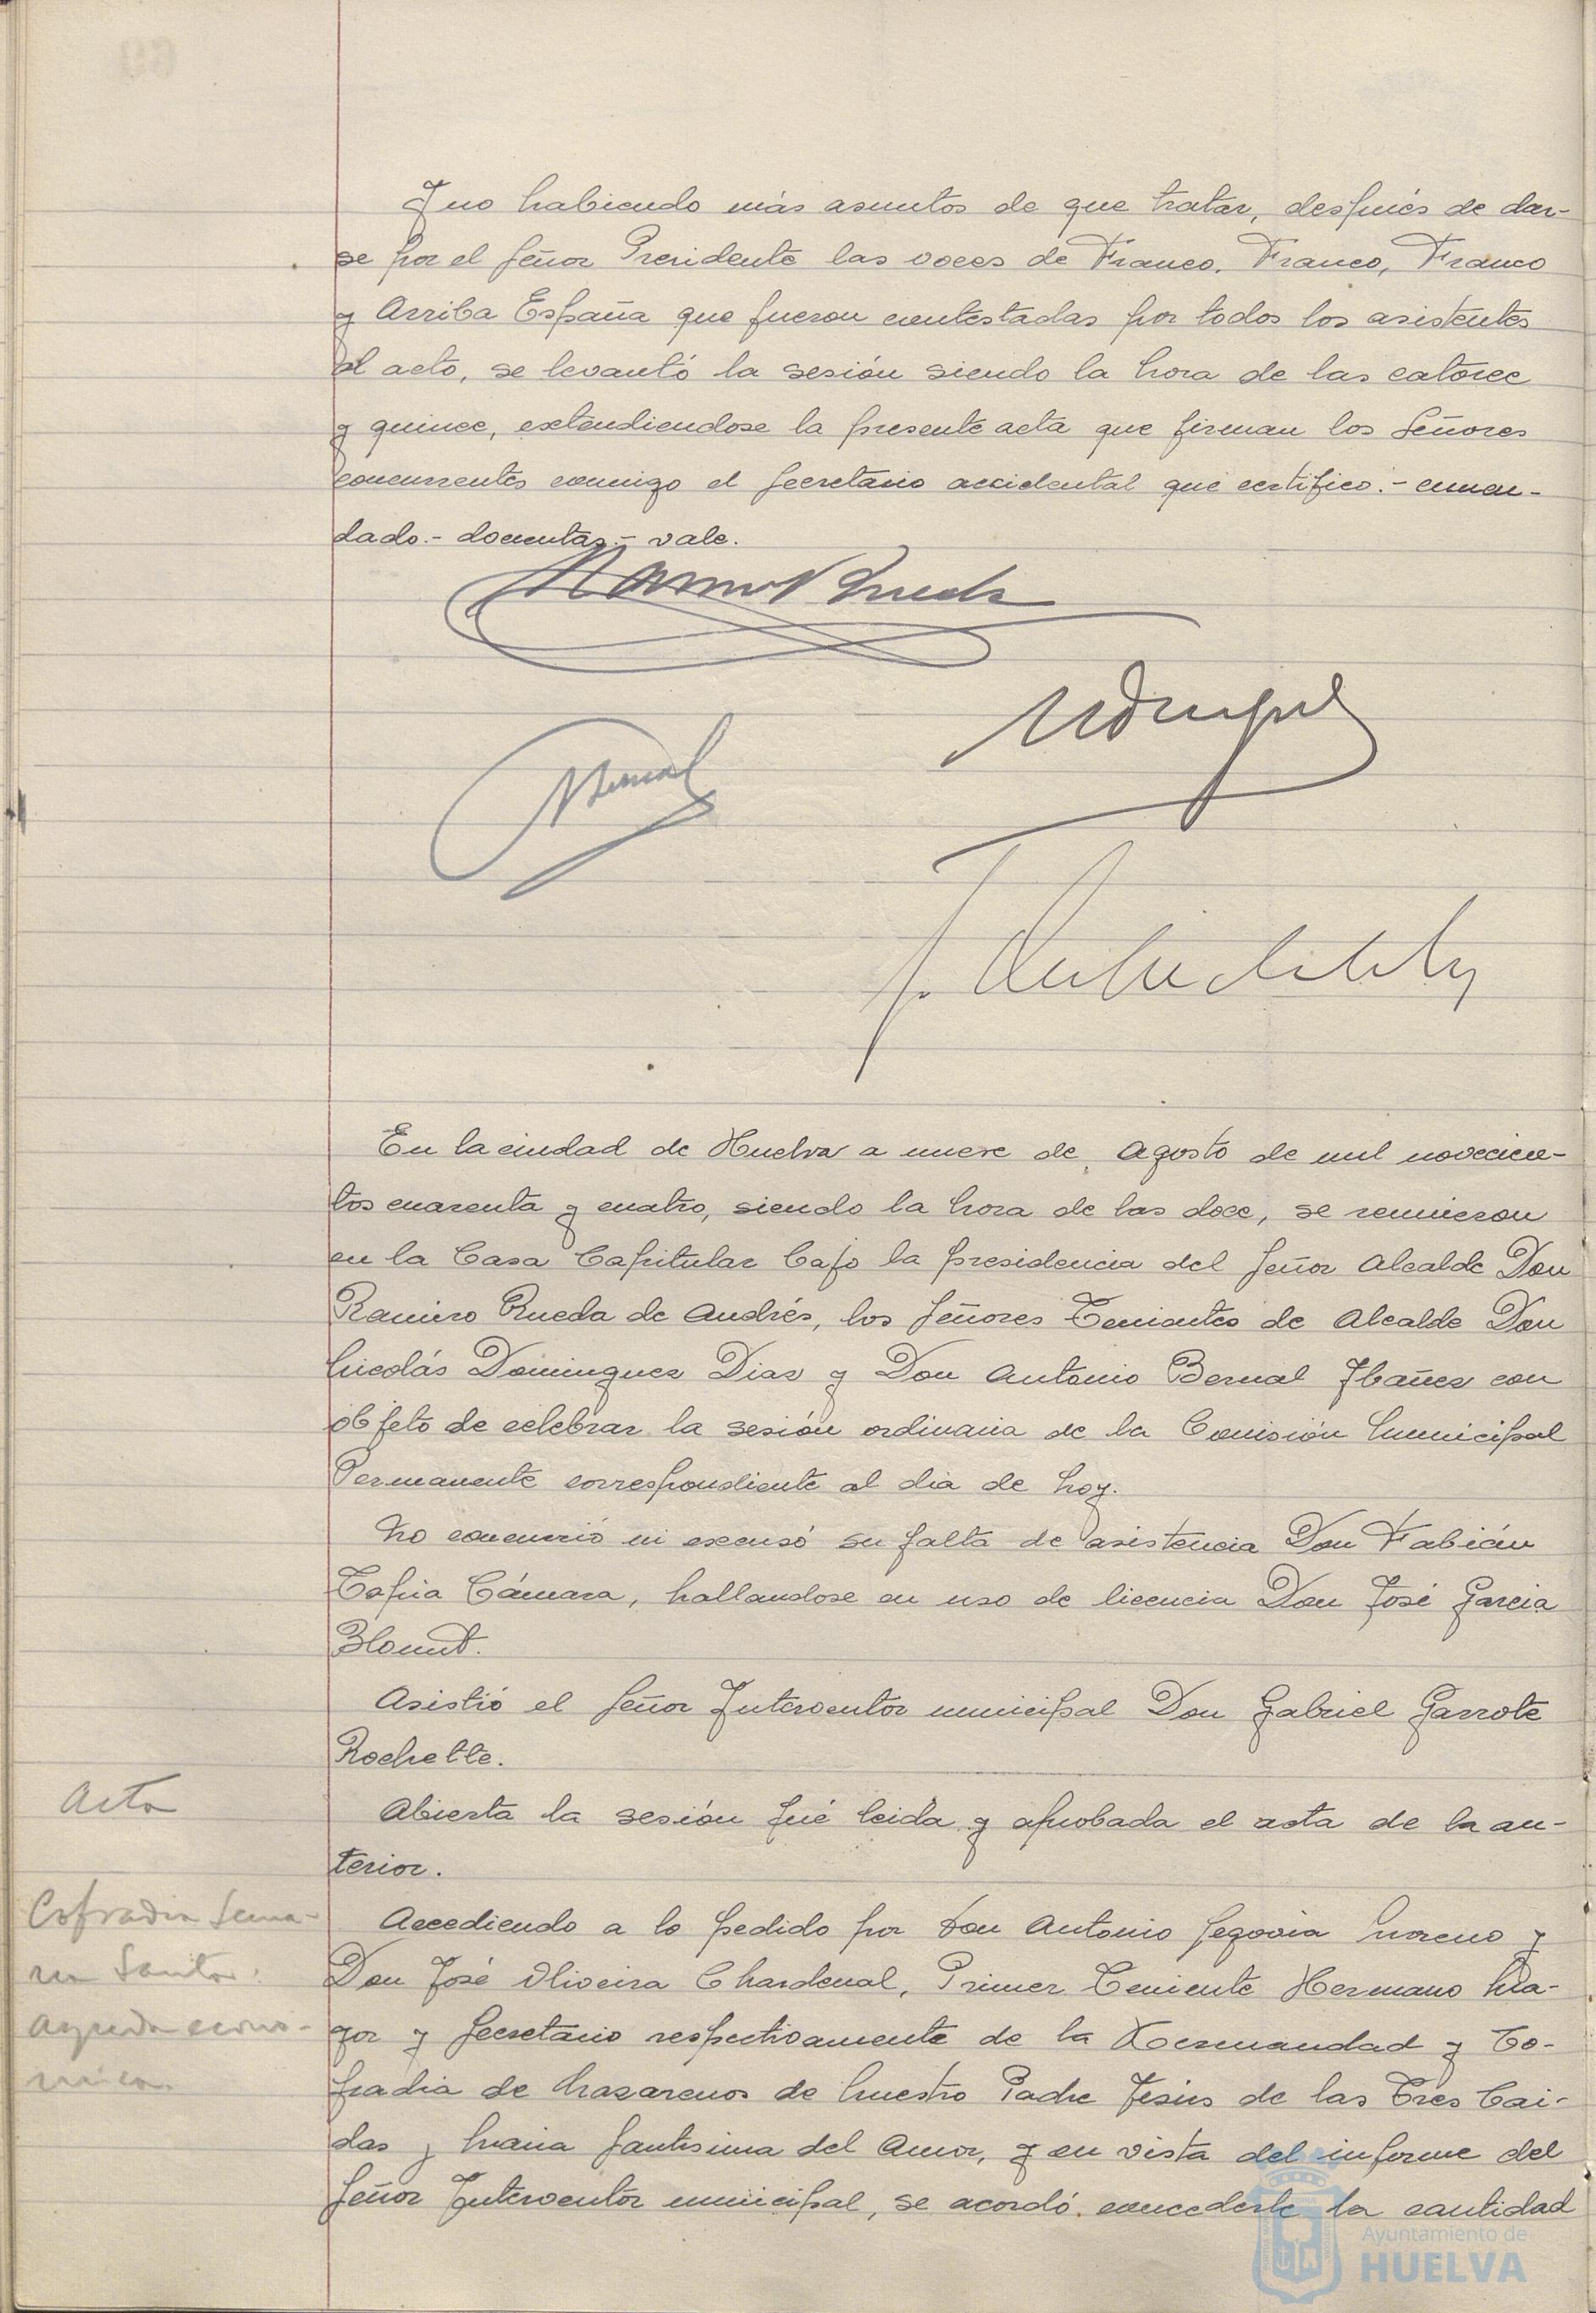 Y no habiendo más asuntos de que tratar, después de dar-
se por el Señor Presidente las voces de Franco, Franco, Franco
y Arriba España que fueron contestadas por todos los asistentes
al acto, se levantó la sesión siendo la hora de las catorce
y quince, extendiendose la presente acta que firman los Señores
concurrentes conmigo el Secretario accidental que certifico.- enmen-
dado.- docentas.- vale.
Ramiro Rueda
Bernal
En la ciudad de Huelva a nueve de Agosto de mil novecien-
tos cuarenta y cuatro, siendo la hora de las doce, se reunieron
en la Casa Capitular bajo la presidencia del Señor Alcalde Don
Ramiro Rueda de Andrés, los Señores Tenientes de Alcalde Don
Nicolás Dominguez Diaz y Don Antonio Bernal Ybañez con
objeto de celebrar la sesión ordinaria de la Comisión Municipal
Permanente correspondiente al dia de hoy.
No concurrió ni excusó su falta de asistencia Don Fabián
Tapia Cámara, hallandose en uso de licencia Don José Garcia
Blount.
Asistió el Señor Interventor municipal Don Gabriel Garrote
Rochette.
Acta
Abierta la sesión fué leida y aprobada el acta de la an-
terior.
Cofradia Sema-
na Santa.
Ayuda econo-
mica.
Accediendo a lo pedido por Don Antonio Segovia Moreno y
Don José Oliveira Chardenal, Primer Teniente Hermano Ma-
yor y Secretario respectivamente de la Hermandad y Co-
fradia de Nazarenos de Nuestro Padre Jesús de las Tres Cai-
das y Maria Santisima del Amor, y en vista del informe del
Señor Interventor municipal, se acordó concederle la cantidad
Ayuntamiento de
HUELVA